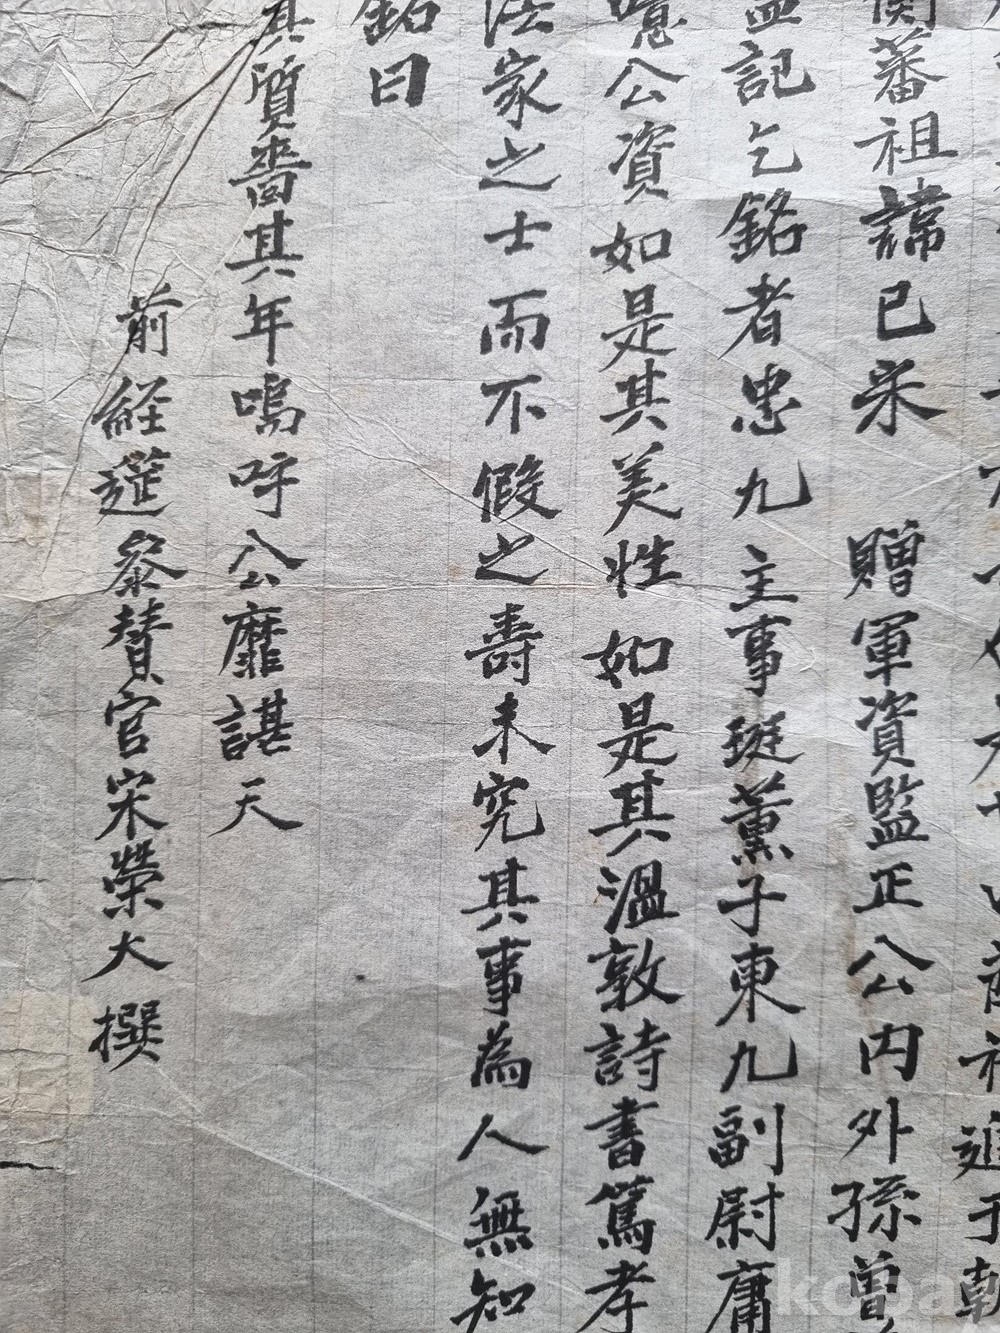 進于朝
蕃祖諱已采 贈軍資監正公内外孫曾
記乞銘者忠九主事珽薰子東九副尉庸
噫公資如是其美性如是其溫敦詩書篤孝
法家之士而不假之壽未究其事為人無知
銘曰
其質嗇其年嗚呼公靡諶天
前經筵叅贊官宋榮大撰
koba